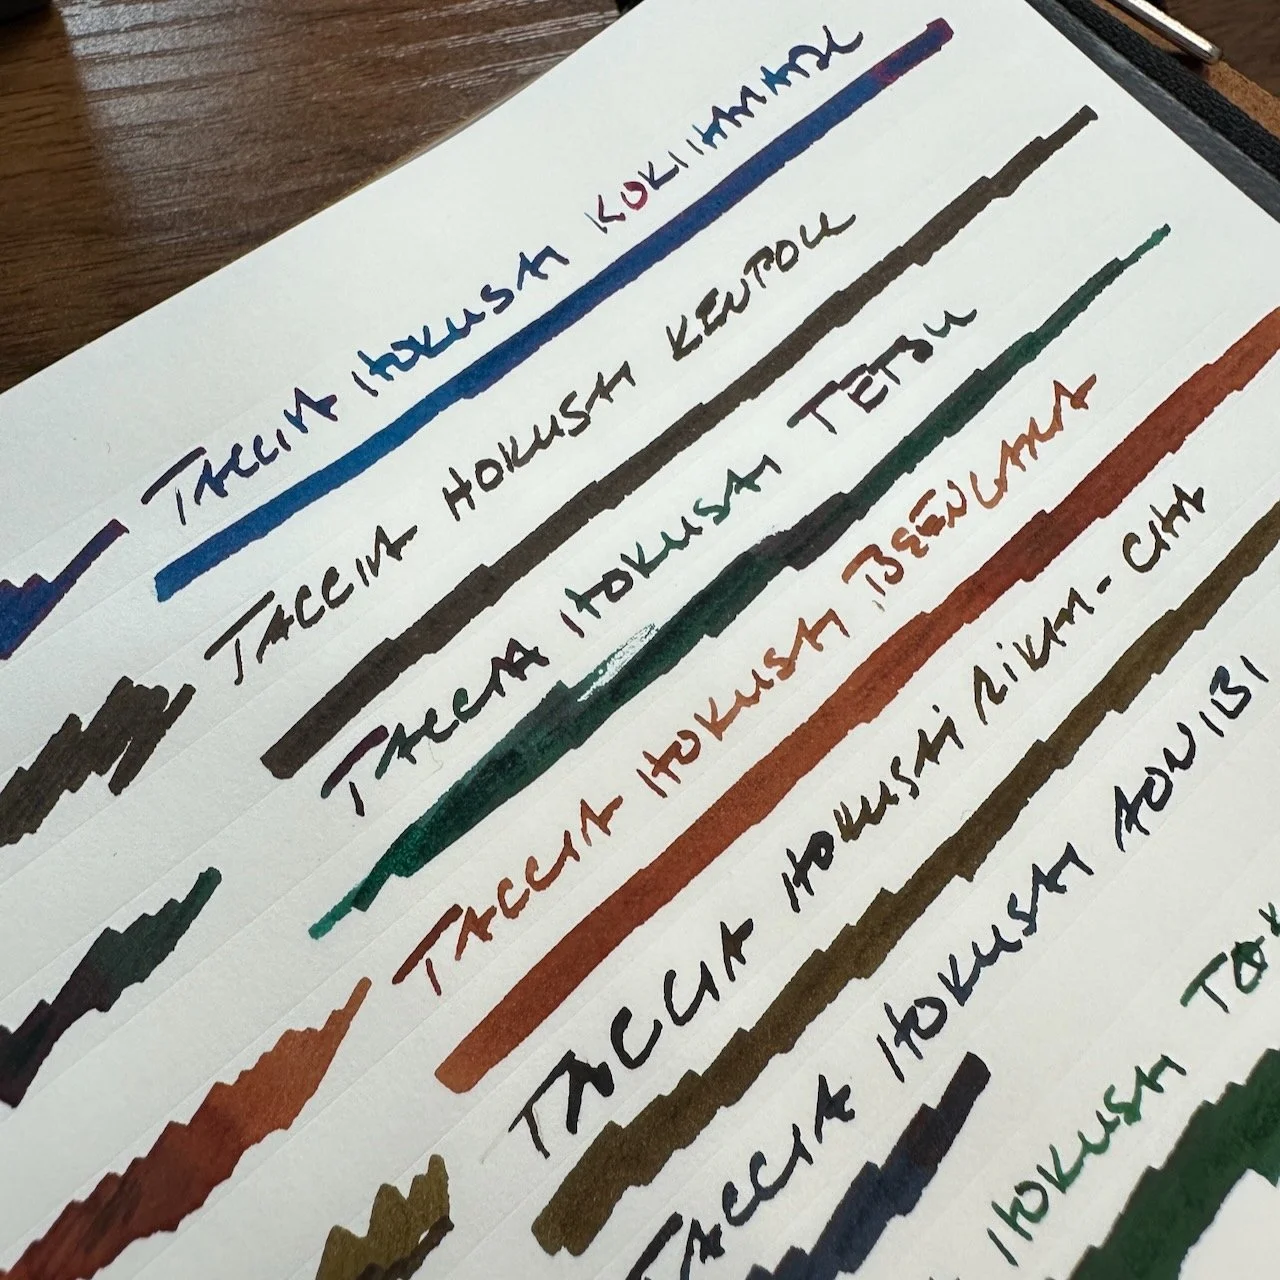 TACCIA HOKUSAI KOKIIHANADA
TACCIA HOKUSAI KENPOU
TACCIA HOKUSAI TETSU
TACCIA HOKUSAI BEENGARA
TACCIA HOKUSAI RIKIU-CHA
TACCIA HOKUSAI AONIBI
HOKUSAI